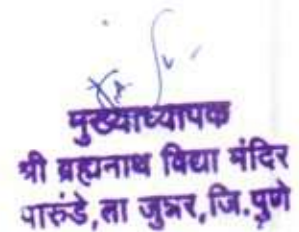 मुख्याध्यापक
श्री ब्रह्मनाथ विद्या मंदिर
पारुंडे,ता जुन्नर,जि.पुणे